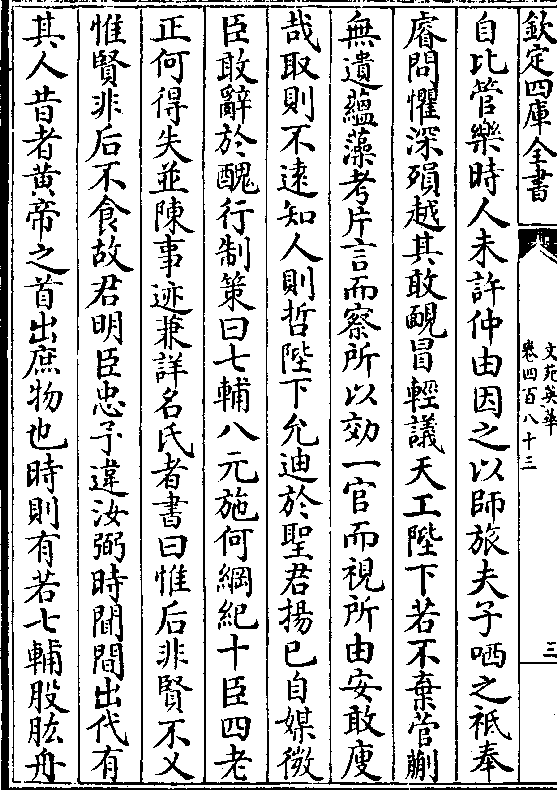 欽定四庫全書
文苑英華
卷四百八十三
三
自比管樂時人未許仲由因之以師旅夫子哂之祗奉
睿問懼深殞越其敢靦冒輕議天工陛下若不棄菅蒯
無遺蘊藻考片言而察所以効一官而視所由安敢廋
哉取則不逺知人則哲陛下允迪於聖君揚已自媒微
臣敢辭於醜行制策曰七輔八元施何綱紀十臣四老
正何得失並陳事迹兼詳名氏者書曰惟后非賢不乂
惟賢非后不食故君明臣忠予違汝弼時聞間出代有
其人昔者黄帝之首出庶物也時則有若七輔股肱舟